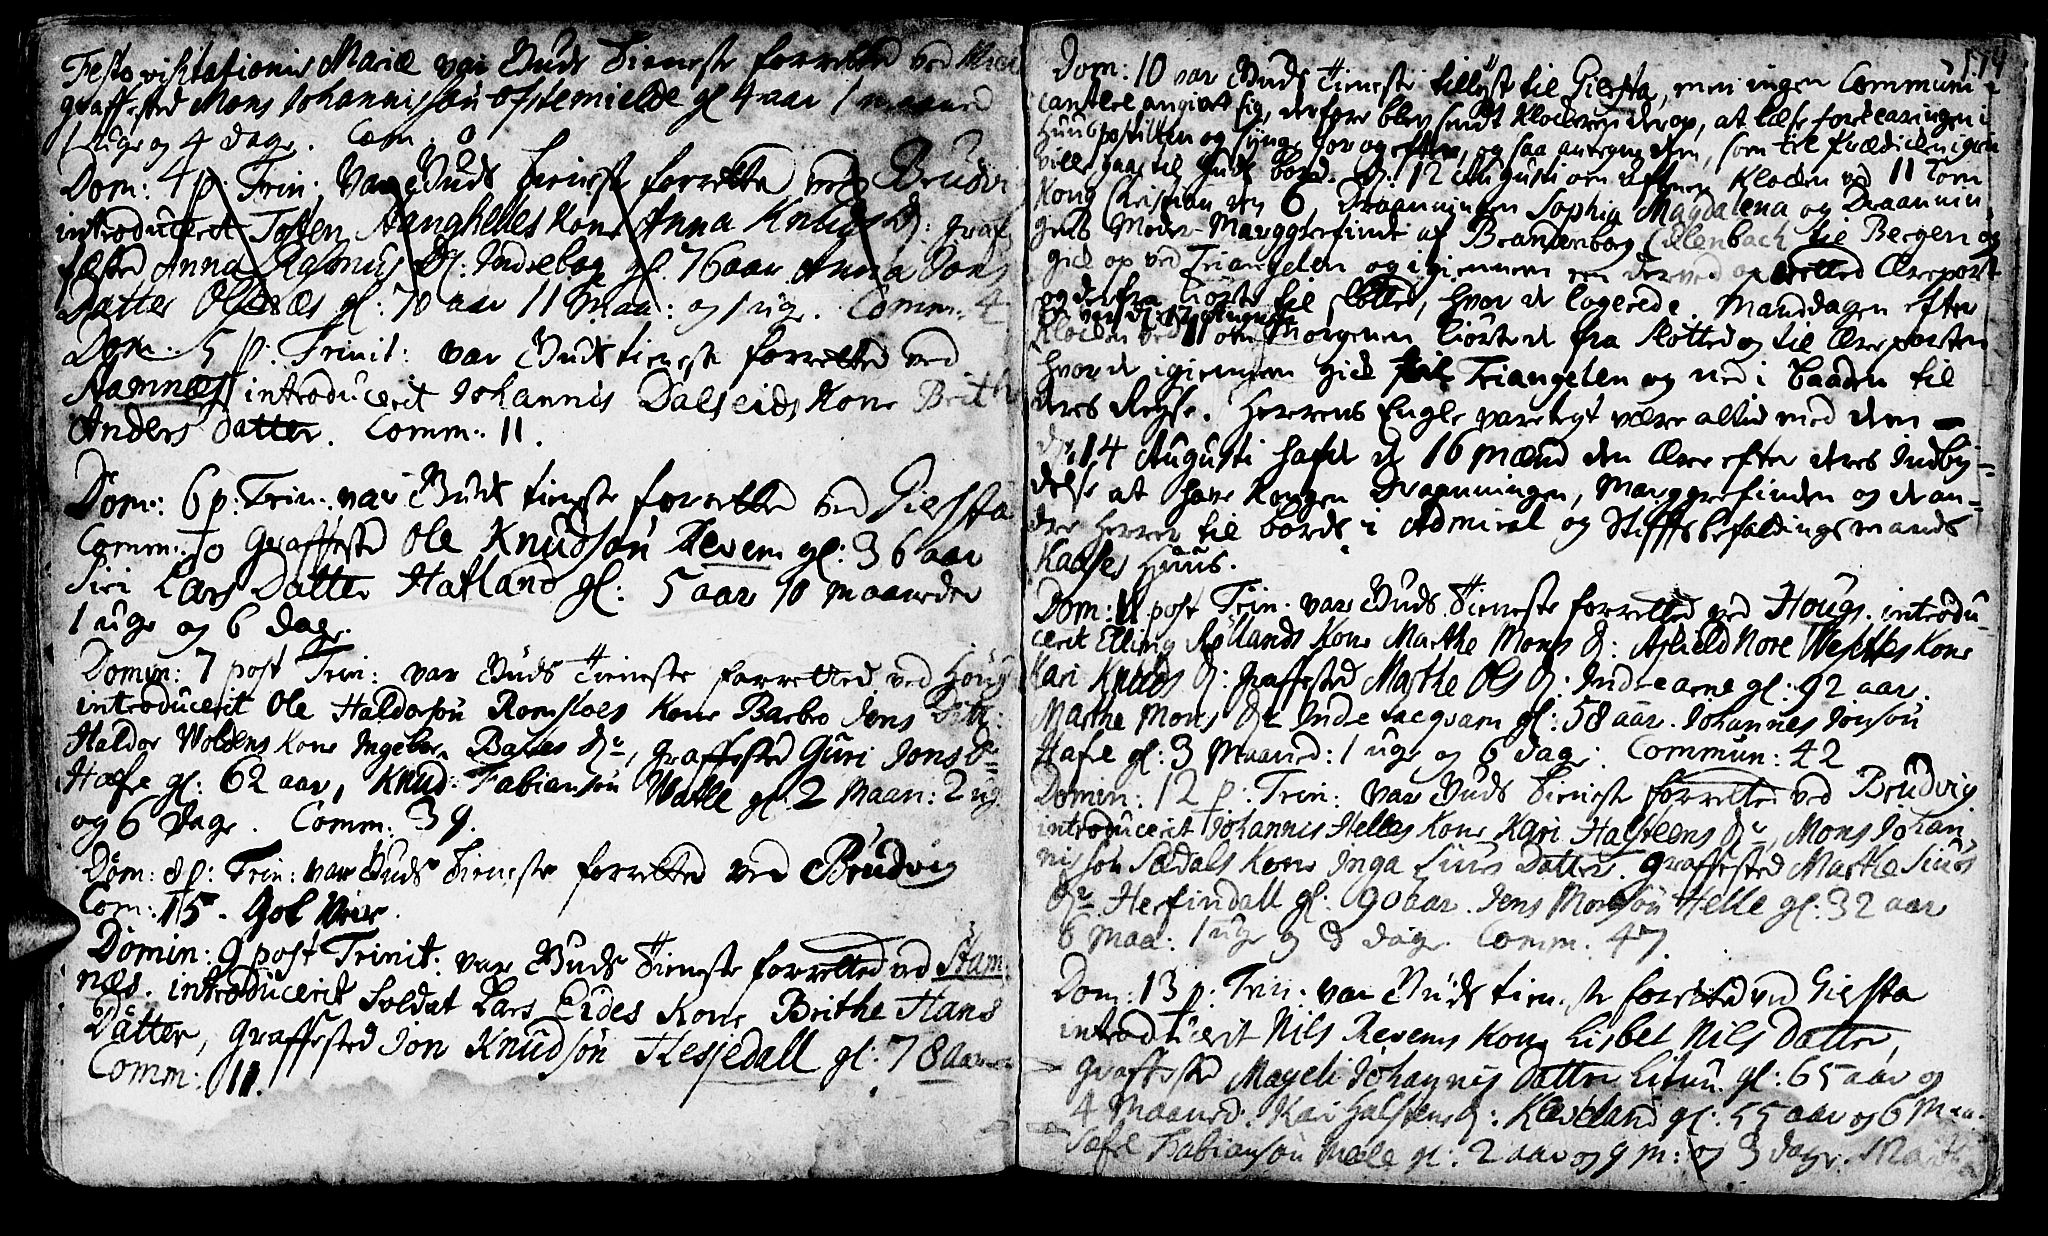 Festo visitationis Mariæ var Guds Tieneste forrettet ved
graffested Mons Johannissøn Øfstemielde gl 4 aar 1 maaned
1 uge og 4 dage. Com: 0
Dom: 4 p: Trin: var Guds tieneste forretted ved Brudvi
introducerit Tosten Aanghelles Kone Anna Knuds D: graf
fæsted Anna Rasmus D: Indrebøg gl: 76 aar Anna Jons
Datter Olsnæs gl: 70 aar 11 maa: og 1 uge. Comm: 4
Dom: 5 p: Trinit: var Guds tieneste forretted ved
Stamnæs introducerit Johannis Dalseids Kone Brithe
Anders datter. Comm: 11.
Dom: 6 p: Trin: var Guds tieneste forretted ved Giersta
Comm: 70 Graffested Ole Knudsøn Revem gl: 36 aar
Siri Lars Datter Hafland gl: 5 aar 10 maaneder
1 uge og 6 dage.
Domin: 7 post Trin: var Guds Tieneste forretted ved Houg
introducerit Ole Haldorsøn Romsloes Kone Barbro Jens Dtr:
Haldor Woldens Kone Ingebor Baltes Dr, graffested Guri Jons Dr
Hæfre gl: 62 aar, Knud Fabiansøn Walle gl: 2 Maan: 2 ug
og 6 Dage. Comm: 39.
Dom: 8 p: Trin: var Guds Tieneste forretted ved Brudvig
Com: 15.
Domin: 9 post Trinit: var Guds Tieneste forretted ved Stam
næs. introducerit Soldat Lars Eides Kone Brithe Hans
Datter, graffested Jon Knudsøn Hessjedall gl: 78 aar
Comm: 11.
514
Dom: 10 var Guds Tieneste tillyst til Giersta, men ingen Communi
cantere angivet sig, derfore blev sendt Klockeren derop, at læse forklaringen i
Huuspostillen og synge for og efter, og saa antegne dem, som til Prædicken igien
ville gaae til Guds bord. D: 12 Augusti om aftenen Klocken ved 11 kom
Kong Christian den 6 Dronningen Sophia Magdalena og Dronnin
gens Moder Marggrefinde af Brandenborg Culenbach til Bergen og
gick op ved Triangelen og igiennem en derved opretted Æreport
og derfra kiørte til slotted, hvor de logerede. Manddagen efter
som var d: 17 Augusti
Klocken ved 11 om Morgenen kiørte de fra Slotted og til Ære porten
hvor de igiennem gick til Triangelen og ned i baaden til
deres Reyse. Herrens Engle varetegt være altid med dem
d: 14 Augusti hafde de 16 mænd den Ære efter deres Indby-
delse at have Kongen Dronningen, Marggrefinden og de an-
dre Herrer til bords i Admiral og Stiftsbefaldingsmands
Kaases Huus.
Dom: 11 post Trin: var Guds Tieneste forretted ved Hougs. introdu-
cerit Elling Røllands Kone Marthe Mons D: Askield Nore Westres Kone
Kari Knuds D: graffested Marthe Ols D: Indre arne gl: 92 aar.
Marthe Mons Dr Indre tacqvam gl: 58 aar. Johannes Jonsøn
Hafre gl: 3 Maaned: 1 uge og 6 Dage. Commun: 42
Domin: 12 p: Trin: var Guds Tieneste forretted ved Brudvig
introducerit Johannis Helles Kone Kari Halsteens Dr, Mons Johan
nissøn Sædals Kone Inga Siurs Datter. graffested Marthe Siurs
Dr Herfindall gl: 90 aar. Jens Monsøn Helle gl: 32 aar
6 maa: 1 uge og 3 dage. Comm: 47
Dom: 13 p: Trin: var Guds tieneste forretted ved Giersta
introducerit Nils Revems Kone Lisbet Nils Datter,
graffested Mageli Johannis Datter Litun gl: 65 aar og
4 Maaned: Kari Halstens D: Kleveland gl: 55 aar og 6 Maa.
Fabiansøn Walle gl: 2 aar og 9 m: og 3 dage.